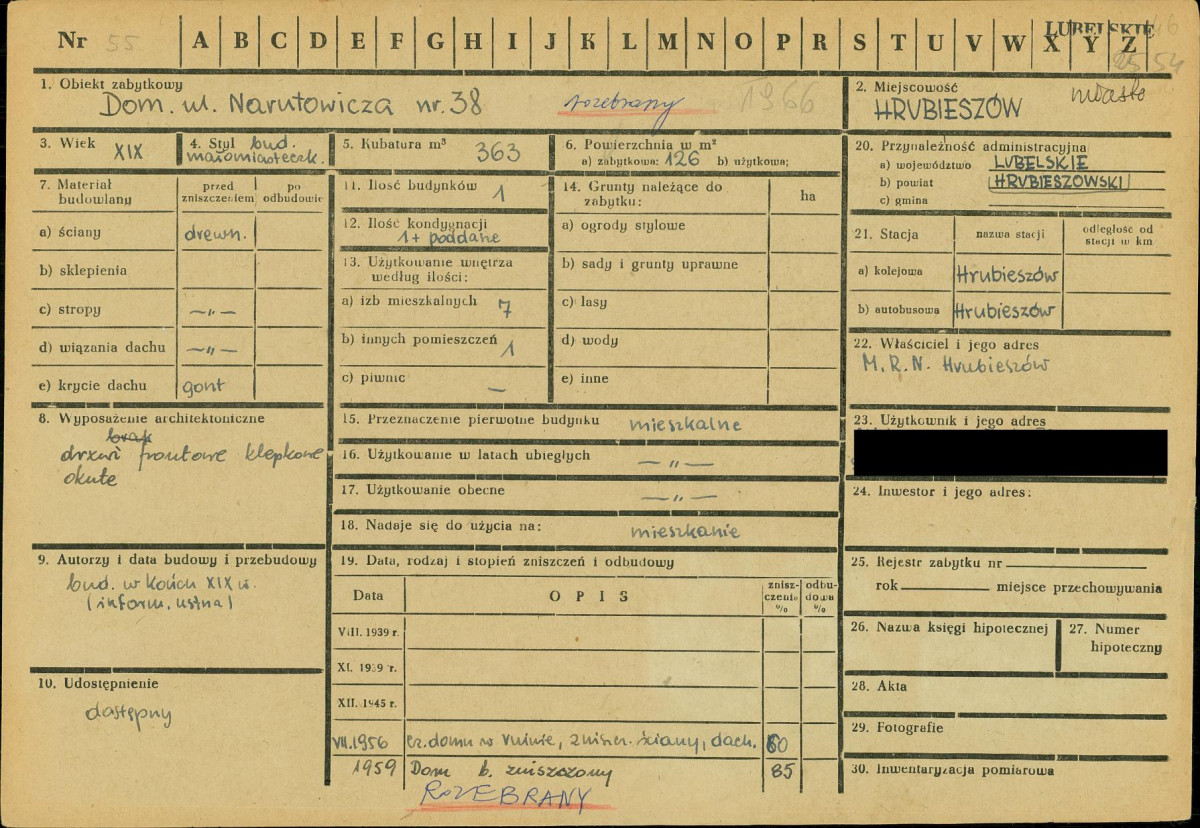 Nr 55 A B C D E F G H I J K L M N O P R S T U V W X Y Z
LUBELSKIE
1. Obiekt zabytkowy
Dom. ul. Narutowicza nr. 38 rozebrany 1966
2. Miejscowość miasto
HRUBIESZÓW
3. Wiek XIX
4. Styl bud. małomiasteczk.
5. Kubatura m³ 363
6. Powierzchnia w m²
a) zabytkowa: 126 b) użytkowa;
7. Materiał budowlany
przed zniszczeniem
po odbudowie
a) ściany drewn.
b) sklepienia
c) stropy —„—
d) wiązania dachu —„—
e) krycie dachu gont
8. Wyposażenie architektoniczne
brak
drzwi frontowe klepkowe
okute
9. Autorzy i data budowy i przebudowy
bud. w końcu XIX w.
(inform. ustna)
10. Udostępnienie
dostępny
11. Ilość budynków 1
12. Ilość kondygnacji
1 + poddasze
13. Użytkowanie wnętrza
według ilości:
a) izb mieszkalnych 7
b) innych pomieszczeń 1
c) piwnic —
14. Grunty należące do
zabytku: ha
a) ogrody stylowe
b) sady i grunty uprawne
c) lasy
d) wody
e) inne
15. Przeznaczenie pierwotne budynku mieszkalne
16. Użytkowanie w latach ubiegłych —„—
17. Użytkowanie obecne —„—
18. Nadaje się do użycia na: mieszkanie
19. Data, rodzaj i stopień zniszczeń i odbudowy
Data OPIS znisz-czenia % odbu-dowa %
VIII. 1939 r.
XI. 1939 r.
XII. 1945 r.
VII. 1956 cz. domu w ruinie, zniszcz. ściany, dach. 60
1959 Dom b. zniszczony 85
ROZEBRANY
20. Przynależność administracyjna
a) województwo LUBELSKIE
b) powiat HRUBIESZOWSKI
c) gmina
21. Stacja nazwa stacji odległość od stacji w km
a) kolejowa Hrubieszów
b) autobusowa Hrubieszów
22. Właściciel i jego adres
M. R. N. Hrubieszów
23. Użytkownik i jego adres
24. Inwestor i jego adres:
25. Rejestr zabytku nr
rok miejsce przechowywania
26. Nazwa księgi hipotecznej
27. Numer hipoteczny
28. Akta
29. Fotografie
30. Inwentaryzacja pomiarowa